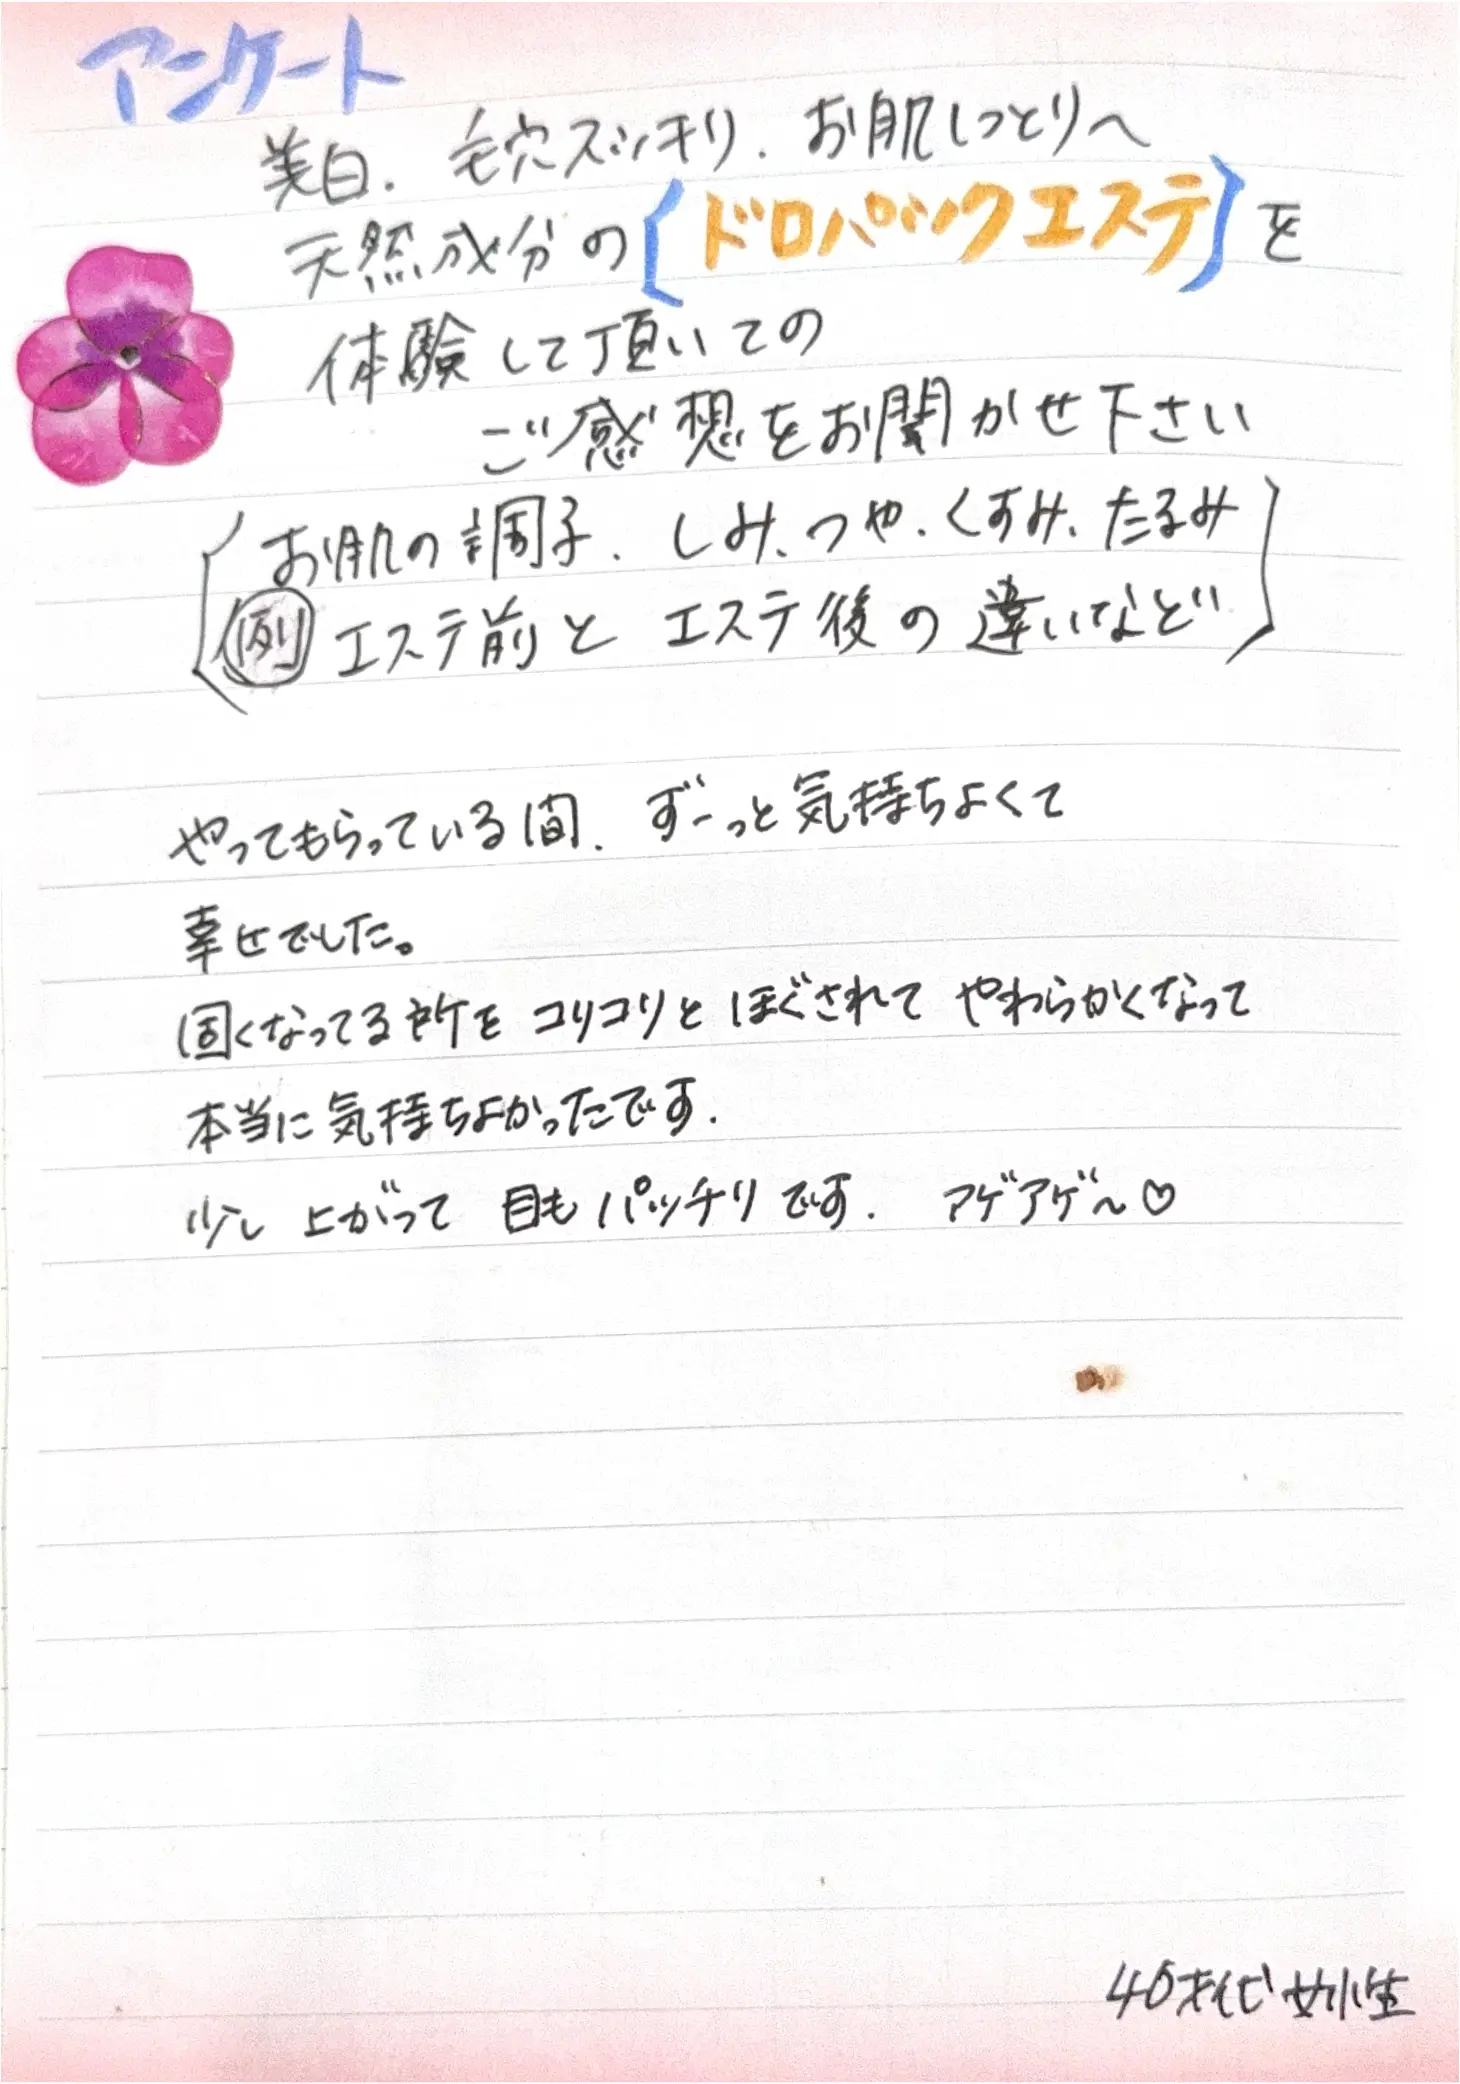 アンケート
美白. 毛穴スッキリ. お肌しっとりへ
天然成分の{ドロパックエステ}を
体験して頂いての
ご感想をお聞かせ下さい
(お肌の調子. しみ、つや、くすみ、たるみ
例 エステ前と エステ後の 違いなど)
やってもらっている間. ずーっと気持ちよくて
幸せでした。
固くなってる所を コリコリと ほぐされて やわらかくなって
本当に気持ちよかったです.
少し 上がって 目も パッチリです. アゲアゲ〜♡
40才代 女性